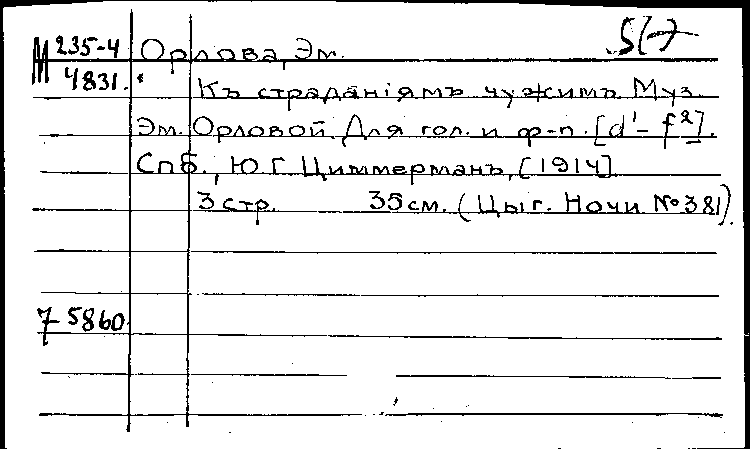 М 235-4 Орлова, Эм. 5(-7
4831. Къ страданіямъ чужимъ Муз.
Эм. Орловой. Для гол. и ф-п. [d¹-f²].
Спб., Ю.Г. Циммерманъ, [1914]
3 стр. 35 см. (Цыг. Ночи №381).
7 5860